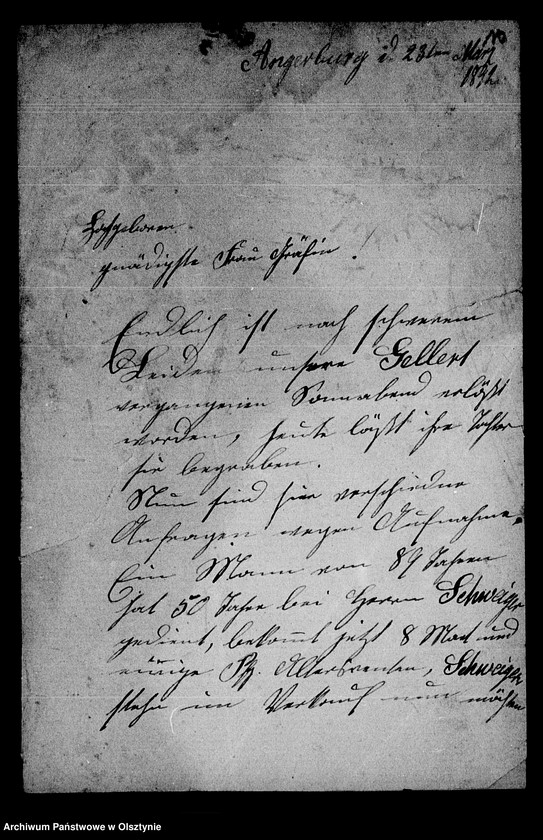 Angerburg d 23ten März
1892
Hochgeboren
gnädigste Frau Gräfin!
Endlich ist nach schwerem
Leiden unsere Gellert
vergangenen Sonnabend erlößt
worden, heute läßt ihre Tochter
sie begraben.
Nun sind hier verschiedne
Anfragen wegen Aufnahme.
Ein Mann von 89 Jahren
hat 50 Jahre bei Herrn Schweiger
gedient, bekommt jetzt 8 Mark und
einige Pfg. Altersrenten, Schweiger
stehn im Verkauf nun möchten
Archiwum Państwowe w Olsztynie